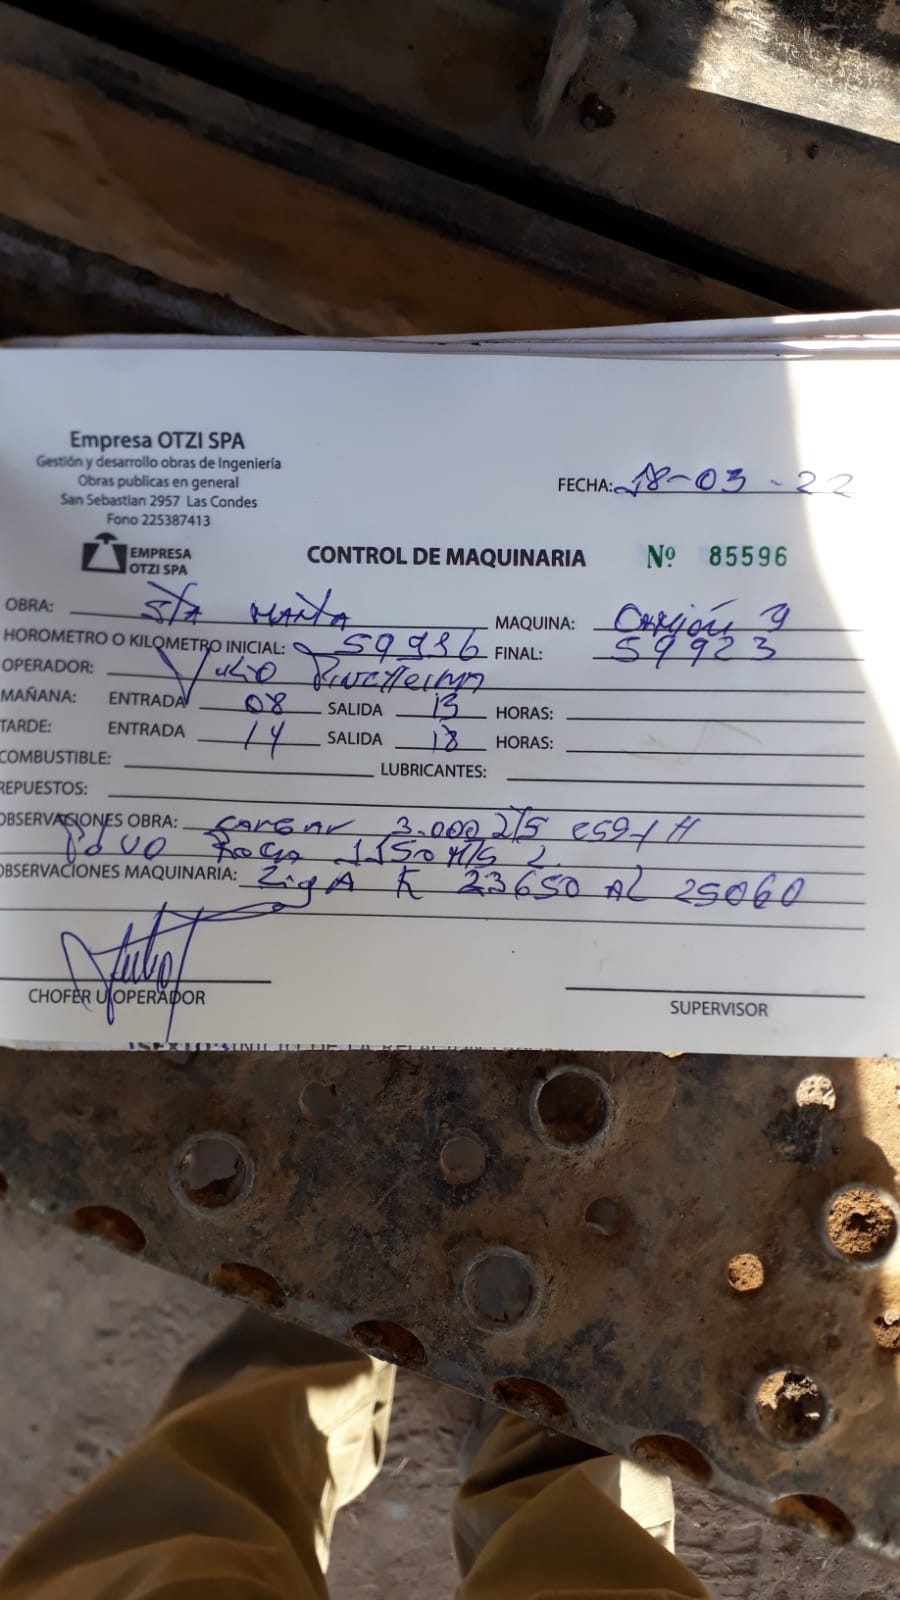 Empresa OTZI SPA
Gestión y desarrollo obras de Ingeniería
Obras publicas en general
San Sebastian 2957 Las Condes
Fono 225387413
EMPRESA
OTZI SPA
FECHA: 18-03-22
CONTROL DE MAQUINARIA Nº 85596
OBRA: STA MARTA MAQUINA: CAMIÓN 9
HOROMETRO O KILOMETRO INICIAL: 59916 FINAL: 59923
OPERADOR: Julio
MAÑANA: ENTRADA 08 SALIDA 13 HORAS:
TARDE: ENTRADA 14 SALIDA 18 HORAS:
COMBUSTIBLE: LUBRICANTES:
REPUESTOS:
OBSERVACIONES OBRA: CARGAR 3.000
1150
OBSERVACIONES MAQUINARIA: K 23650 AL 25060
CHOFER U OPERADOR
SUPERVISOR